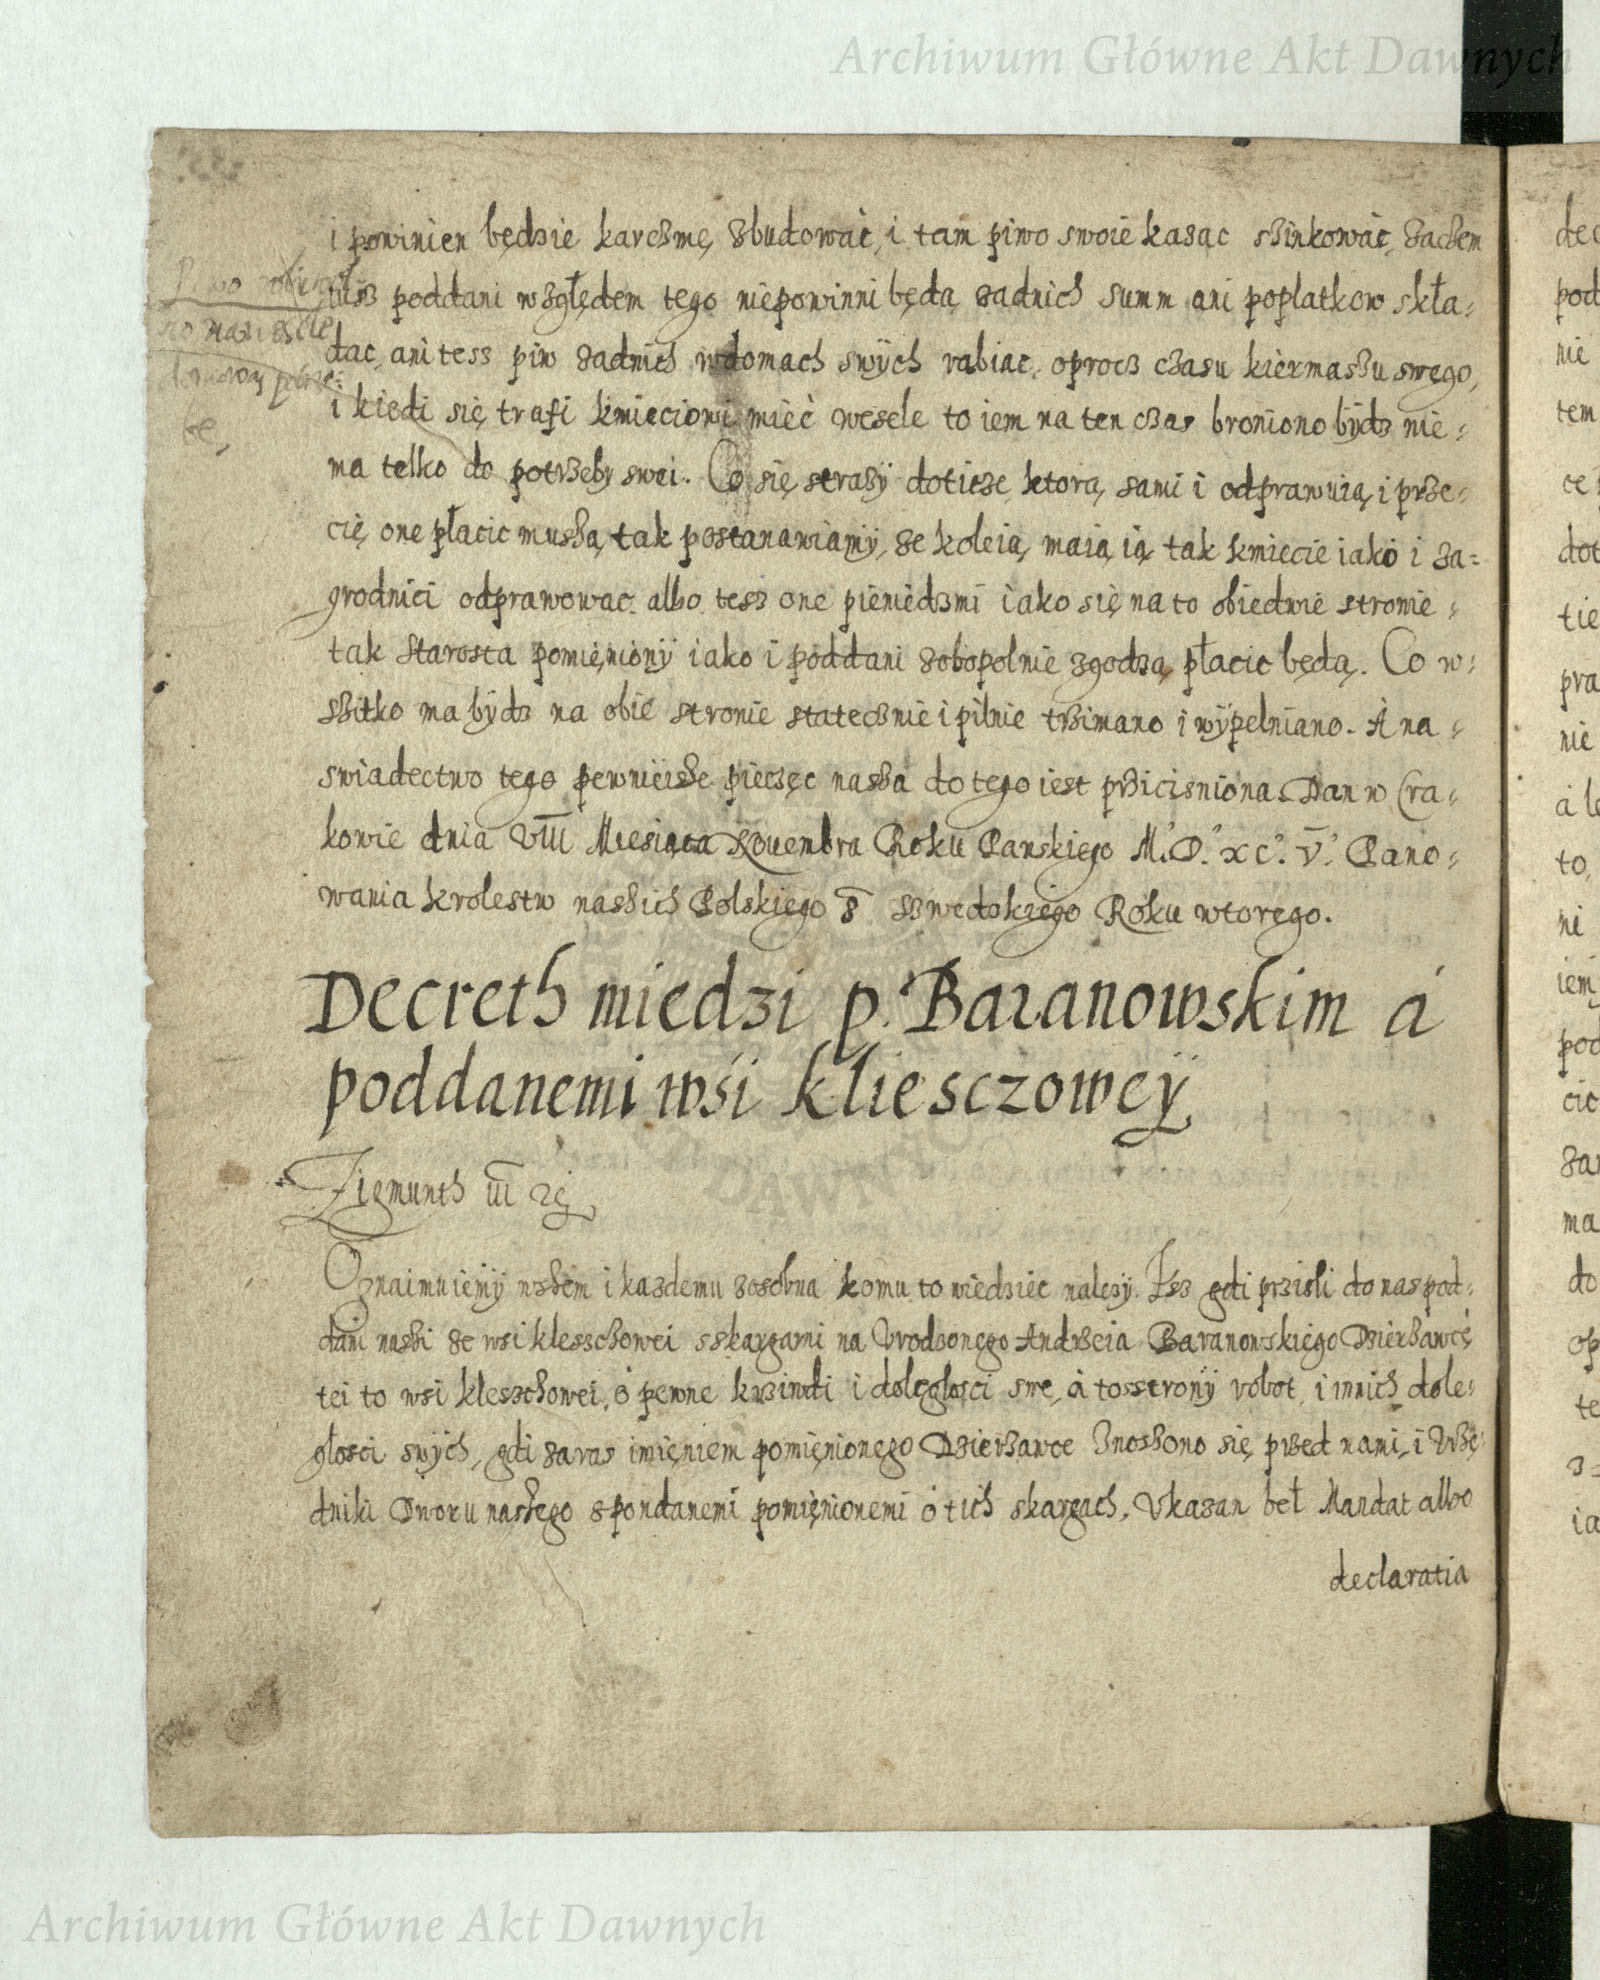 Archiwum Główne Akt Dawnych
i powinien będzie karczmę zbudowac, i tam piwo swoie kazac szinkowac, zaczem
iusz poddani względem tego niepowinni będą zadnich summ ani poplatkow skła-
dac, ani tesz piw zadnich wdomach swÿch rabiac, oprocz czasu kiermaszu swego,
i kiedi się trafi kmieciowi miec wesele to iem na ten czas broniono bÿdz nie-
ma telko do potrzeby swei. Co się strazÿ doticze ktorą sami i odprawuią i prze-
cię one płacic muszą, tak postanawiamÿ, ze koleią maią ią tak kmiecie iako i za-
grodnici odprawowac albo tesz one pieniędzmi iako się na to obiedwie stronie
tak Starosta pomięnionÿ iako i poddani zobopolnie zgodzą płacic będą. Co w-
szitko ma bÿdz na obie stronie statecznie i pilnie trzimano i wÿpelniano. A na
swiadectwo tego pewnieisze pieczęc nasza do tego iest prziciśniona. Dan w Cra-
kowie dnia VIII Miesiąca Nouembra Roku Panskiego M. D. xc. v. Pano-
wania krolestw naszich Polskiego 8 Szwedzkiego Roku wtorego.
Piwo
no na wesele
domową potrze-
be,
Decreth miedzi p. Baranowskim á
poddanemi wśi kliesczoweÿ
Zigmunth III
Oznaimuiemÿ wszem i kazdemu zosobna komu to wiedziec nalezÿ. Isz gdi przisli do nas pod-
dani naszi ze wsi kleszchowei sskargami na Vrodzonego Andrzeia Baranowskiego Dzierzawcę
tei to wsi kleszchowei, o pewne krziwdi i dolęglosci swe, á tosstronÿ robot, i innich dole-
głosci swÿch, gdi zaras imięniem pomięnionego Dzierzawce Znoszono się przed nami, i Vrzę-
dniki Dworu naszego spondanemi pomięnionemi o tich skargach. Vkazan beł Mandat albo
declaratia
Archiwum Główne Akt Dawnych